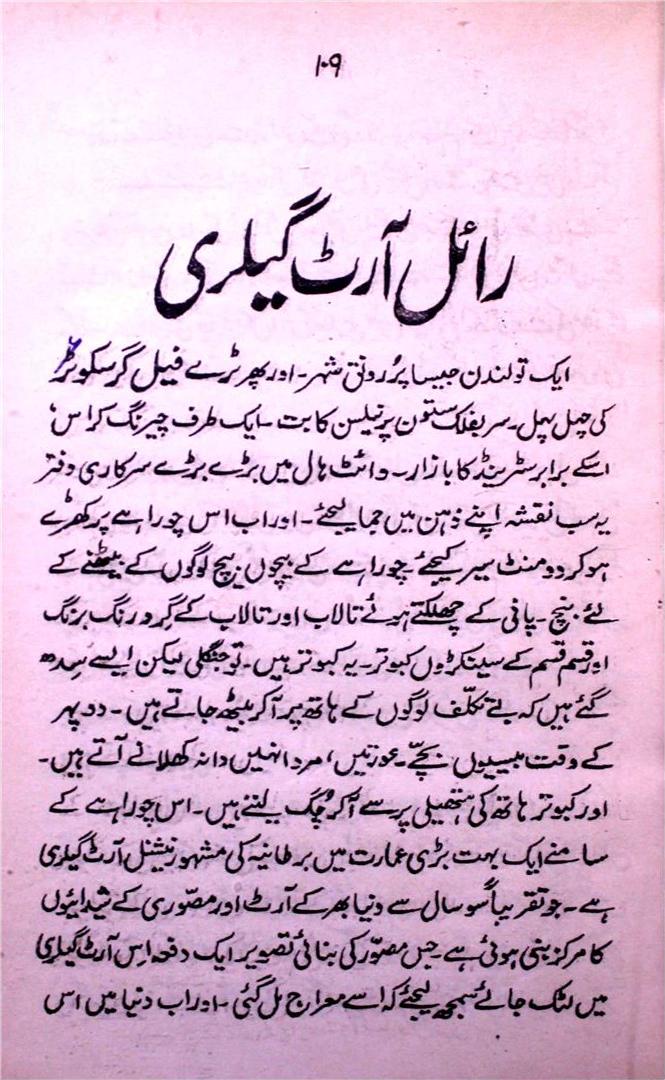 ۱۰۹
رائل آرٹ گیلری
ایک تو لندن جیسا پُر رونق شہر۔ اور پھر ٹرے فیل گر سکوئر
کی چہل پہل۔ سر بفلک ستون پر نیلسن کا بت۔ ایک طرف چیرنگ کراس،
اسکے برابر سٹرینڈ کا بازار۔ وائٹ ہال میں بڑے بڑے سرکاری دفتر
یہ سب نقشہ اپنے ذہن میں جما لیجئے۔ اور اب اس چوراہے پر کھڑے
ہو کر دو منٹ سیر کیجئے چوراہے کے بیچوں بیچ لوگوں کے بیٹھنے کے
لئے بنچ۔ پانی کے چھلکتے ہوئے تالاب اور تالاب کے گرد رنگ برنگ
اور قسم قسم کے سینکڑوں کبوتر۔ یہ کبوتر ہیں۔ تو جنگلی لیکن ایسے سِدھ
گئے ہیں کہ بے تکلّف لوگوں کے ہاتھ پر آ کر بیٹھ جاتے ہیں۔ دوپہر
کے وقت بیسیوں بچّے۔ عورتیں، مرد انہیں دانہ کھلانے آتے ہیں۔
اور کبوتر ہاتھ کی ہتھیلی پر سے آ کر چُگ لیتے ہیں۔ اس چوراہے کے
سامنے ایک بہت بڑی عمارت میں برطانیہ کی مشہور نیشنل آرٹ گیلری
ہے۔ جو تقریباً سو سال سے دنیا بھر کے آرٹ اور مصّوری کے شیدائیوں
کا مرکز بنی ہوئی ہے۔ جس مصوّر کی بنائی تصویر ایک دفعہ اِس آرٹ گیلری
میں لٹک جائے سمجھ لیجئے کہ اسے معراج مل گئی۔ اور اب دنیا میں اس